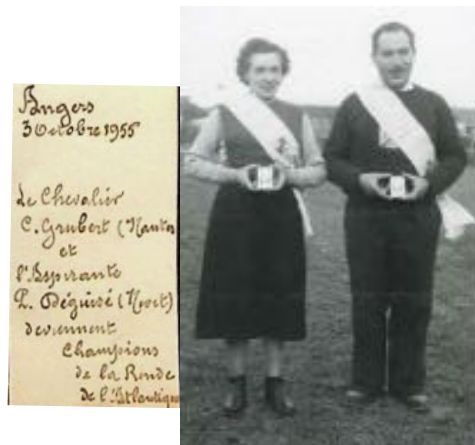 Angers
3 Octobre 1955
Le Chevalier
C. Grubert (Nantes
et
l'Aspirante
P. Déguisé (Niort)
deviennent
Champions
de la Ronde
de l'Atlantique